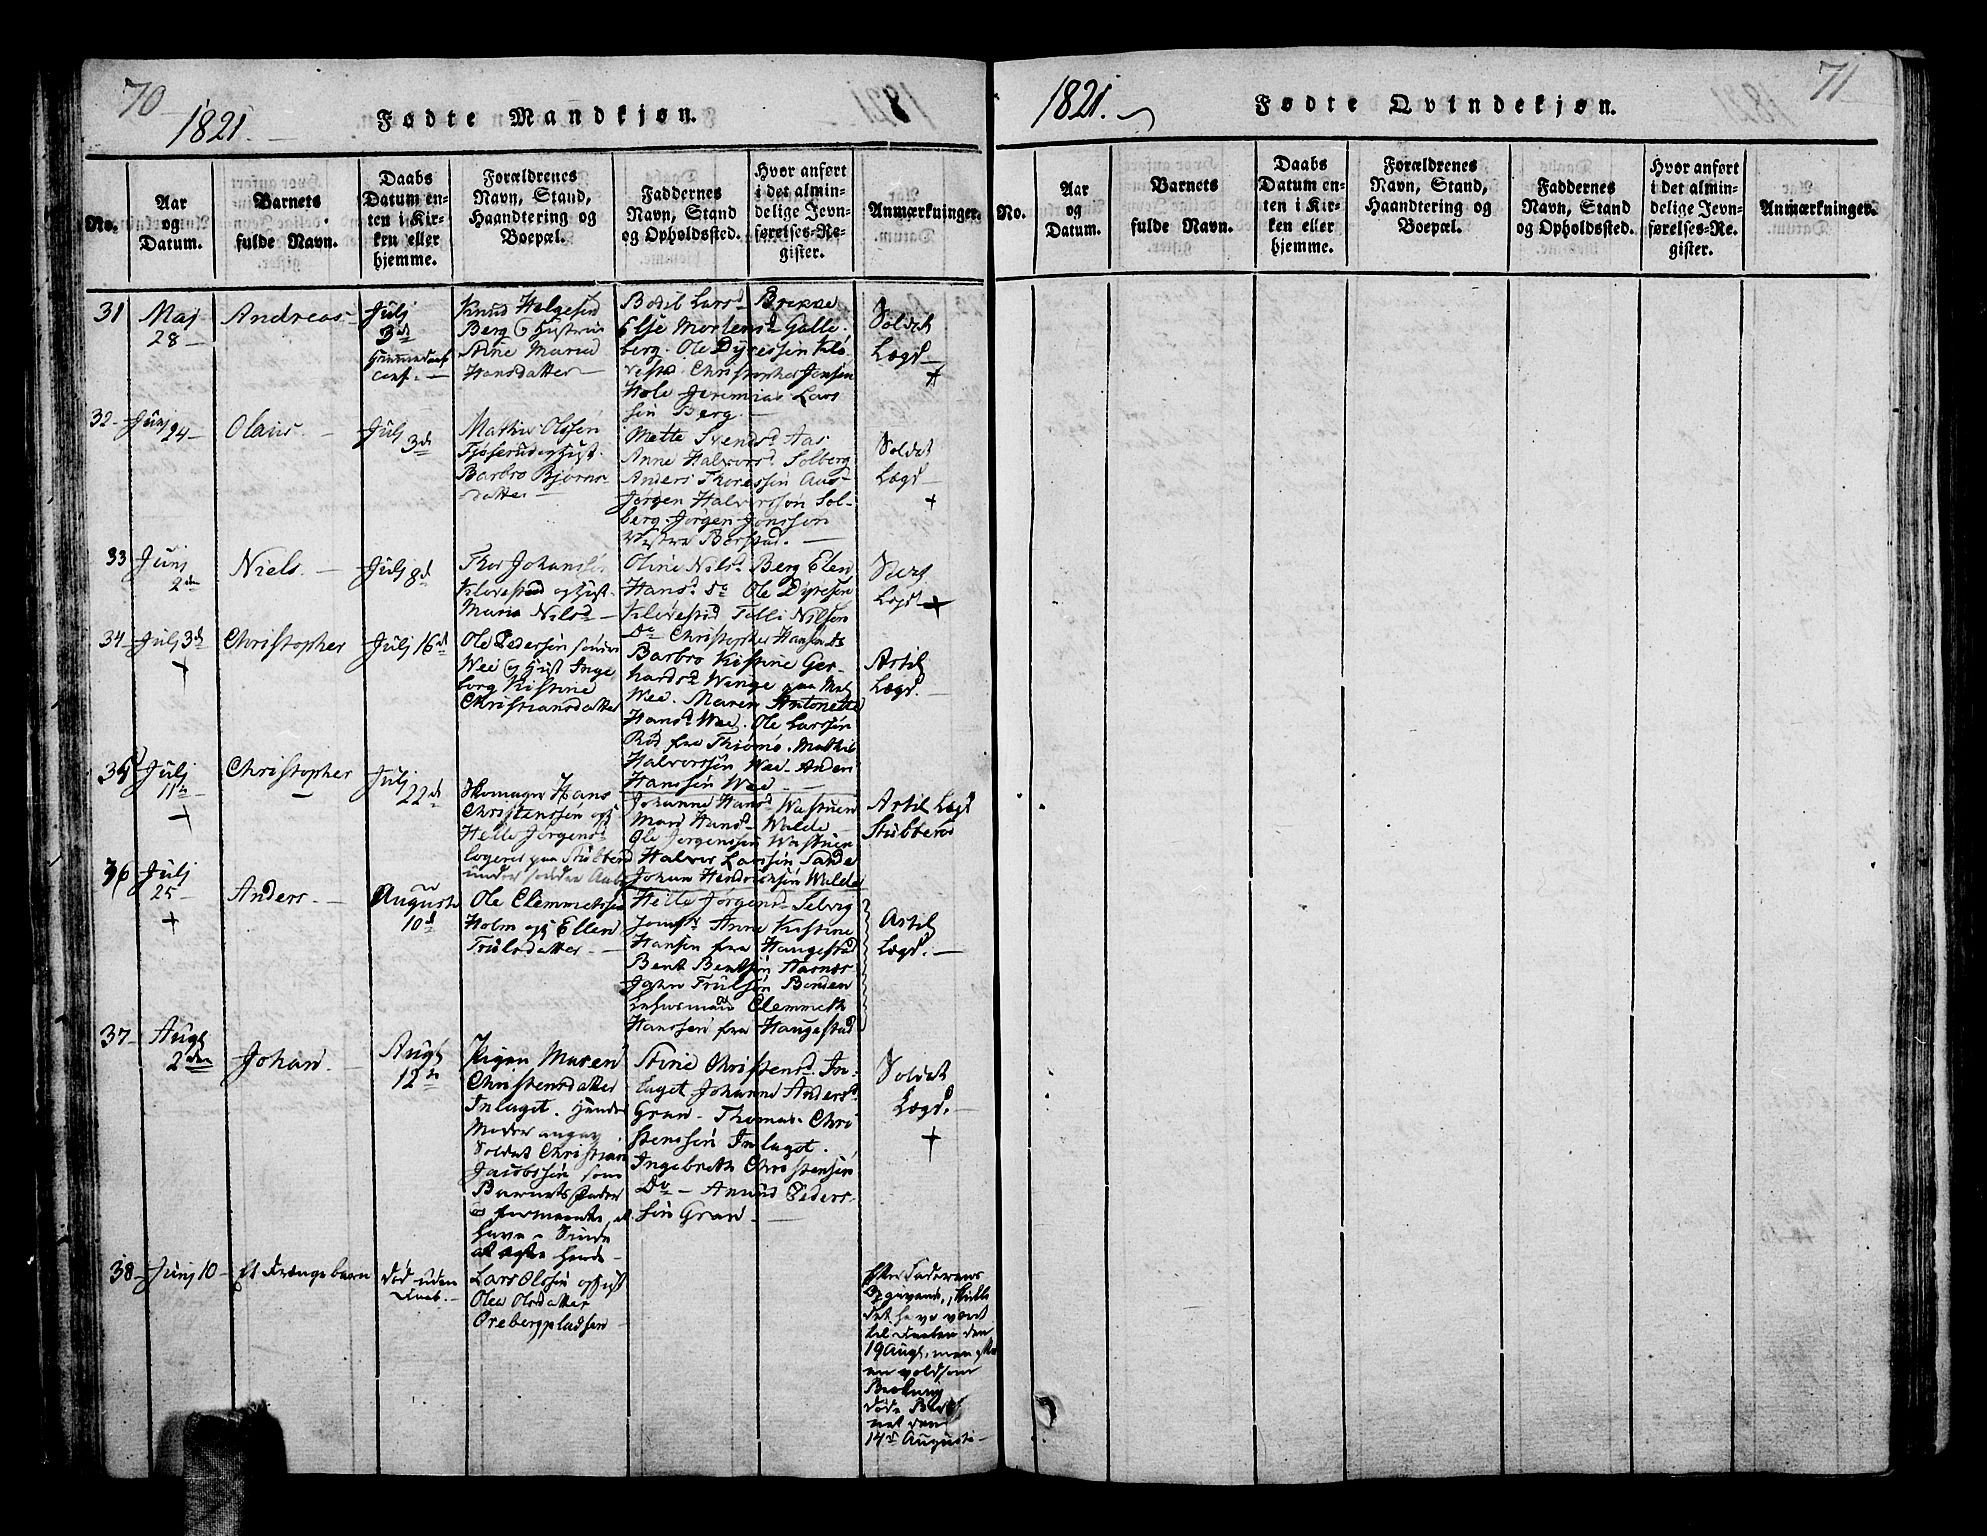 70
1821.
Fødte Mandkjøn.
No.
Aar
og
Datum.
Barnets
fulde Navn.
Daabs
Datum en-
ten i Kir-
ken eller
hjemme.
Forældrenes
Navn, Stand,
Haandtering og
Boepæl.
Faddernes
Navn, Stand
og Opholdssted.
Hvor anført
i det almin-
delige Jevn-
førelses-Re-
gister.
Anmærkninger.
31
Maj
28
Andreas
Julj
3d
Knud Helgesen
Berg og Hustrue
Anne Maria
Hansdatter
Bodil Larsd. Brekke
Else Mortensd. Galle-
berg. Ole Dyresen Klø
vestad. Christopher Jensen
Hole Jeremias Lars
sen Berg.
Soldat
Lægd
32
Junj 24
Olaus.
Julj 3d
Mathis Olssøn
Barbro Bjørns-
datter
Mette Svendsd. Aas
Anne Halvorsd. Solberg
Anders Thoressøn Aas
Jørgen Halvorssøn Sol-
berg. Jørgen Jonssøn
Vestre Borstad.
Soldat
Lægd
33
Junj
2de
Niels.
Julj 8d
Thor Johanssøn
Kløvestad og Hust.
Maria Nilsd
Oline Nilsd. Berg Elen
Hansd. Do Ole Dyresen
Kløvestad Tolli Nilsen
Do Christopher Hansen Do
Lægd
34
Julj 3d
Christopher
Julj 16d
Ole Pedersøn søndre
Wee og Hust. Inge
borg Kistine
Christiansdatter
Barbro Kistine Ger-
hardsd. Wenge
Wee. Maren Antonette
Hansd. Wee. Ole Larssøn
Rød fra Thiømø. Mathis
Halvorssøn Wee. Anders
Hanssøn Wee
Artil
Lægd.
35
Julj
11te
Christopher
Julj
22d
Skomager Hans
Christenssøn og
Helle Jørgensd
logerer paa Stubberød
under
Johanne Hansd. Wastuen
Mari Hansd. Walde
Ole Jørgenssøn Wastuen
Halvor Larssøn Sande
Johan Hendrichsøn Walde
Artil Lægd
Stubberød
36
Julj
25
Anders.
Auguste
10d
Ole Clemmetsen
Holm og Ellen
Trulsdatter.
Helle Jørgensd. Selvig
Jomfr. Anne Kistine
Hansen fra Haugestad
Bent Bentsøn
John Trulsøn Bonden
Clemmeth
Hanssen fra Haugestad
Artil
Lægd.
37
Augt
2den
Johan.
Augt
12te
Pigen Maren
Christensdatter
Inlaget. Hendes
Moder angav
Soldat Christian
Jacobssøn som
Barnets Fader
at
have i Sinde
at ægte hende
Stine Christensd. In-
laget Johanne Andersd.
Gran. Thomas Chri
stenssøn Inlaget.
Ingebreth Christensen
Do Amund Peders-
søn Gran
Soldat
Lægd.
38
Junj 10
Et Drængebarn
død uden
Daab.
Lars Olssøn og Hust
Olea Olsdatter
Orebergpladsen
Efter Faderens
Opgivende, skulle
det have været
til Daaben den
19 Augt, men efter
en voldsom
døde Bar
net den
14d Auguste
1821.
Fødte Qvindekjøn.
71
No.
Aar
og
Datum.
Barnets
fulde Navn.
Daabs
Datum en-
ten i Kir-
ken eller
hjemme.
Forældrenes
Navn, Stand,
Haandtering og
Boepæl.
Faddernes
Navn, Stand
og Opholdssted.
Hvor anført
i det almin-
delige Jevn-
førelses-Re-
gister.
Anmærkninger.